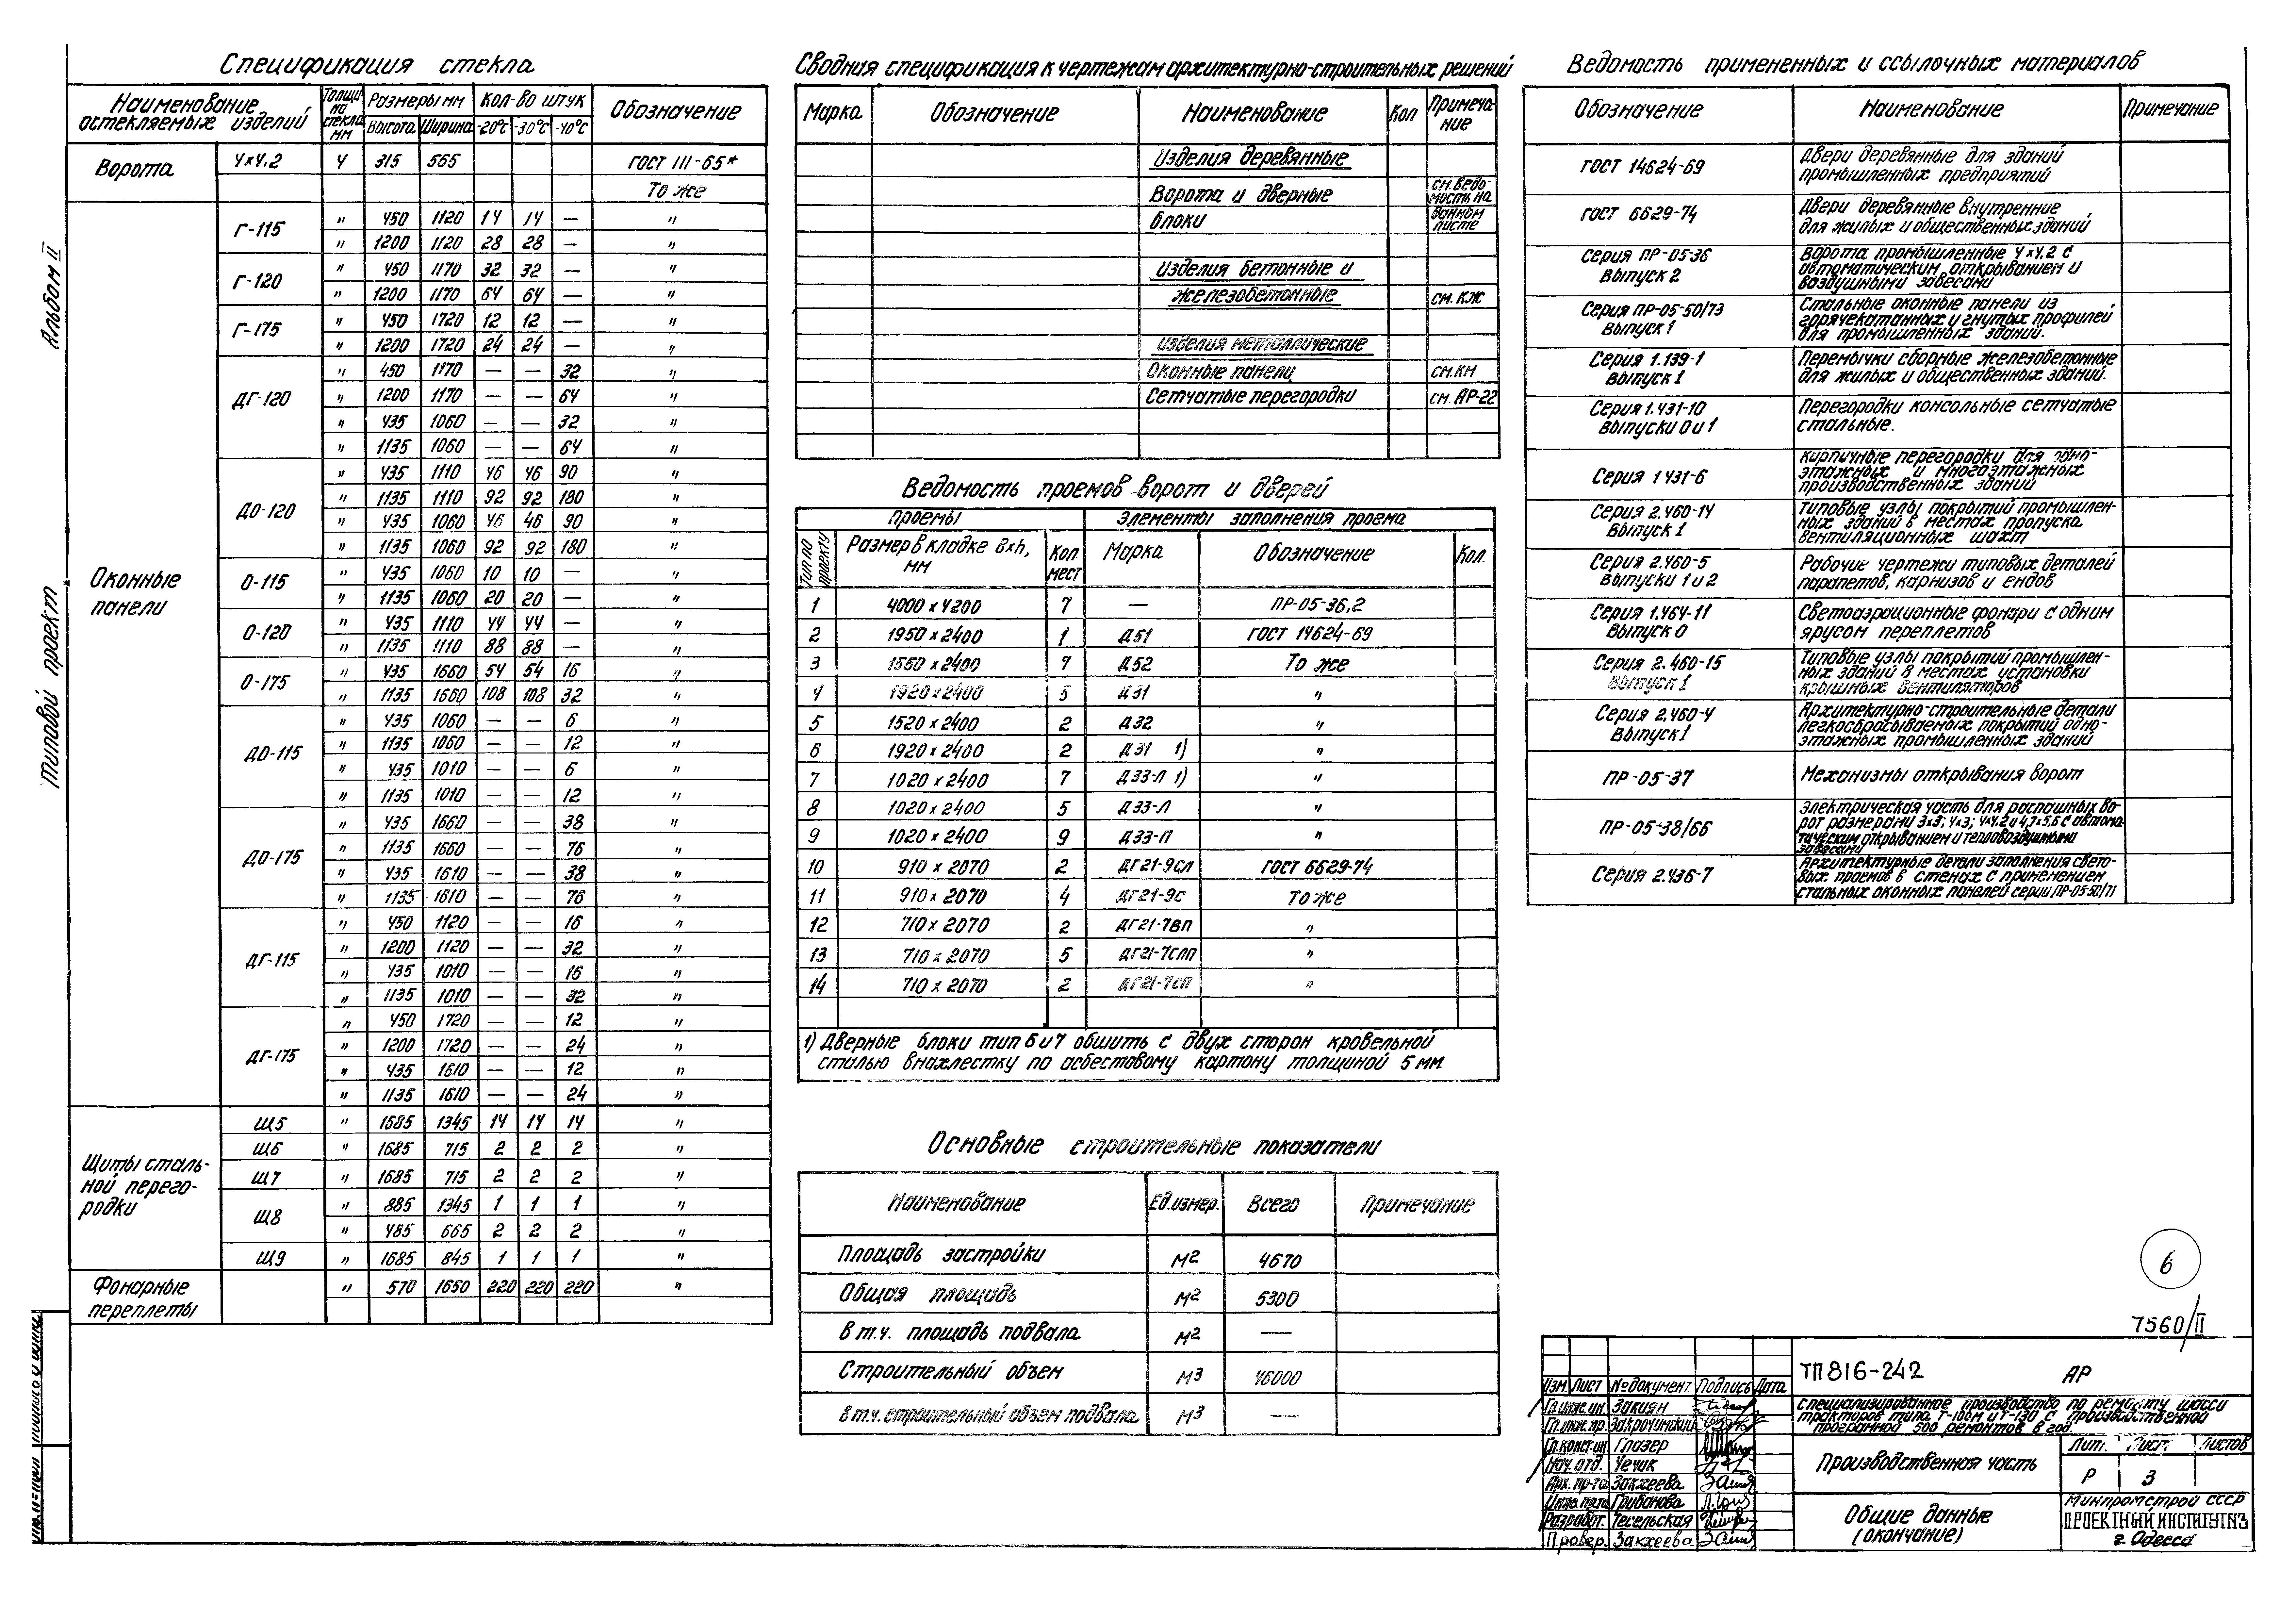 Альбом II
Типовой проект
Спецификация стекла
Наименование остекляемых изделий | Толщина стекла мм | Размеры мм | Кол-во штук | Обозначение
Высота | Ширина | -20°С | -30°С | -40°С
Ворота | 4х4,2 | 4 | 315 | 565 | ГОСТ 111-65*
То же
Оконные панели
Г-115 | " | 450 | 1120 | 14 | 14 | — | "
" | 1200 | 1120 | 28 | 28 | — | "
Г-120 | " | 450 | 1170 | 32 | 32 | — | "
" | 1200 | 1170 | 64 | 64 | — | "
Г-175 | " | 450 | 1720 | 12 | 12 | — | "
" | 1200 | 1720 | 24 | 24 | — | "
ДГ-120 | " | 450 | 1170 | — | — | 32 | "
" | 1200 | 1170 | — | — | 64 | "
" | 435 | 1060 | — | — | 32 | "
" | 1135 | 1060 | — | — | 64 | "
ДО-120 | " | 435 | 1110 | 46 | 46 | 90 | "
" | 1135 | 1110 | 92 | 92 | 180 | "
" | 435 | 1060 | 46 | 46 | 90 | "
" | 1135 | 1060 | 92 | 92 | 180 | "
О-115 | " | 435 | 1060 | 10 | 10 | — | "
" | 1135 | 1060 | 20 | 20 | — | "
О-120 | " | 435 | 1110 | 44 | 44 | — | "
" | 1135 | 1110 | 88 | 88 | — | "
О-175 | " | 435 | 1660 | 54 | 54 | 16 | "
" | 1135 | 1660 | 108 | 108 | 32 | "
ДО-115 | " | 435 | 1060 | — | — | 6 | "
" | 1135 | 1060 | — | — | 12 | "
" | 435 | 1010 | — | — | 6 | "
" | 1135 | 1010 | — | — | 12 | "
ДО-175 | " | 435 | 1660 | — | — | 38 | "
" | 1135 | 1660 | — | — | 76 | "
" | 435 | 1610 | — | — | 38 | "
" | 1135 | 1610 | — | — | 76 | "
ДГ-115 | " | 450 | 1120 | — | — | 16 | "
" | 1200 | 1120 | — | — | 32 | "
" | 435 | 1010 | — | — | 16 | "
" | 1135 | 1010 | — | — | 32 | "
ДГ-175 | " | 450 | 1720 | — | — | 12 | "
" | 1200 | 1720 | — | — | 24 | "
" | 435 | 1610 | — | — | 12 | "
" | 1135 | 1610 | — | — | 24 | "
Щиты стальной перегородки
Щ5 | " | 1685 | 1345 | 14 | 14 | 14 | "
Щ6 | " | 1685 | 715 | 2 | 2 | 2 | "
Щ7 | " | 1685 | 715 | 2 | 2 | 2 | "
Щ8 | " | 885 | 1345 | 1 | 1 | 1 | "
" | 485 | 665 | 2 | 2 | 2 | "
Щ9 | " | 1685 | 845 | 1 | 1 | 1 | "
Фонарные переплеты | " | 570 | 1650 | 220 | 220 | 220 | "
Сводния спецификация к чертежам архитектурно-строительных решений
Марка | Обозначение | Наименование | Кол | Примечание
Изделия деревянные
Ворота и дверные | см. ведомость на
блоки | данном листе
Изделия бетонные и
железобетонные | см. КЖ
Изделия металлические
Оконные панели | см. КМ
Сетчатые перегородки | см. АР-22
Ведомость проемов ворот и дверей
Проемы | Элементы заполнения проема
Тип по проекту | Размер в кладке вхh, мм | Кол мест | Марка | Обозначение | Кол.
1 | 4000 х 4200 | 7 | — | ПР-05-36,2
2 | 1950 х 2400 | 1 | Д51 | ГОСТ 14624-69
3 | 1550 х 2400 | 4 | Д52 | То же
4 | 1920 х 2400 | 5 | Д31 | "
5 | 1520 х 2400 | 2 | Д32 | "
6 | 1920 х 2400 | 2 | Д31 1) | "
7 | 1020 х 2400 | 7 | Д33-Л 1) | "
8 | 1020 х 2400 | 5 | Д33-Л | "
9 | 1020 х 2400 | 9 | Д33-П | "
10 | 910 х 2070 | 2 | ДГ21-9СЛ | ГОСТ 6629-74
11 | 910 х 2070 | 4 | ДГ21-9С | То же
12 | 710 х 2070 | 2 | ДГ21-7ВП | "
13 | 710 х 2070 | 5 | ДГ21-7СЛП | "
14 | 710 х 2070 | 2 | ДГ21-7СП | "
1) Дверные блоки тип 6 и 7 обшить с двух сторон кровельной
сталью внахлестку по асбестовому картону толщиной 5 мм
Основные строительные показатели
Наименование | Ед. измер. | Всего | Примечание
Площадь застройки | м2 | 4670
Общая площадь | м2 | 5300
в т.ч. площадь подвала | м2 | —
Строительный объем | м3 | 46000
в т.ч. строительный объем подвала | м3 | —
Ведомость примененных и ссылочных материалов
Обозначение | Наименование | Примечание
ГОСТ 14624-69 | Двери деревянные для зданий
промышленных предприятий
ГОСТ 6629-74 | Двери деревянные внутренние
для жилых и общественных зданий
Серия ПР-05-36 Выпуск 2 | Ворота промышленные 4х4,2 с
автоматическим открыванием и
воздушными завесами
Серия ПР-05-50/73 Выпуск 1 | Стальные оконные панели из
горячекатанных и гнутых профилей
для промышленных зданий.
Серия 1.139-1 Выпуск 1 | Перемычки сборные железобетонные
для жилых и общественных зданий.
Серия 1.431-10 Выпуски 0 и 1 | Перегородки консольные сетчатые
стальные.
Серия 1 431-6 | Кирпичные перегородки для одно-
этажных и многоэтажных
производственных зданий
Серия 2.460-14 Выпуск 1 | Типовые узлы покрытий промышлен-
ных зданий в местах пропуска
вентиляционных шахт
Серия 2.460-5 Выпуски 1 и 2 | Рабочие чертежи типовых деталей
парапетов, карнизов и ендов
Серия 1.464-11 Выпуск 0 | Светоаэрационные фонари с одним
ярусом переплетов
Серия 2.460-15 Выпуск 1 | Типовые узлы покрытий промышлен-
ных зданий в местах установки
крышных вентиляторов
Серия 2.460-4 Выпуск 1 | Архитектурно-строительные детали
легкосбрасываемых покрытий одно-
этажных промышленных зданий
ПР-05-37 | Механизмы открывания ворот
ПР-05-38/66 | Электрическая часть для распашных во-
рот размерами 3х3; 4х3; 4х4,2 и 4,7х5,6 с автома-
тическим открыванием и тепловоздушными
завесами
Серия 2.436-7 | Архитектурные детали заполнения свето-
вых проемов в стенах с применением
стальных оконных панелей серии ПР-05-50/71
6
7560/II
ТП 816-242 АР
Специализированное производство по ремонту шасси
тракторов типа Т-100М и Т-130 с производственной
программой 500 ремонтов в год.
Изм. | Лист | № документ. | Подпись | Дата
Гл. инж. ин. | Закиян
Гл. инж. пр. | Закрочимский
Гл. конст. ин. | Глазер
Нач. отд. | Уечик
Арх. пр-та | Закхеева
Инж. пр-та | Грибанова
Разработ. | Тесельская
Провер. | Закхеева
Производственная часть
Лит. | Лист | Листов
Р | 3
Общие данные
(окончание)
Минпромстрой СССР
ПРОЕКТНЫЙ ИНСТИТУТ №3
г. Одесса